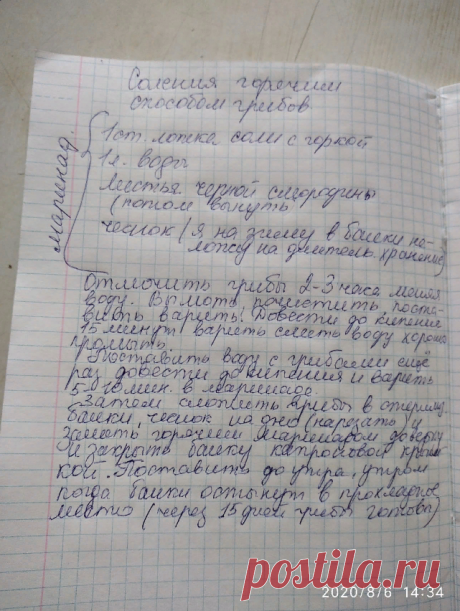 Соления горячим
способом грибов
маринад.
1 ст. ложка соли с горкой
1 л. воды
Листья черной смородины
(потом вынуть
чеснок (я на зиму в банки не
ложу на длитель. хранение)
Отмочить грибы 2-3 часа меняя
воду. Вымоть почистить, поста-
вить варить. Довести до кипения
15 минут варить слить воду хорошо
промыть.
Поставить воду с грибами ещё
раз довести до кипения и варить
5-10 мин. в маринаде.
Затем сложить грибы в стерилиз.
банки, чеснок на дно (нарезать) и
залить горячим маринадом доверху
и закрыть банку капроновой крыш-
кой. Поставить до утра, утром
когда банки остынут в прохладное
место (через 15 дней грибы готовы)
postila.ru
2020/8/6 14:34